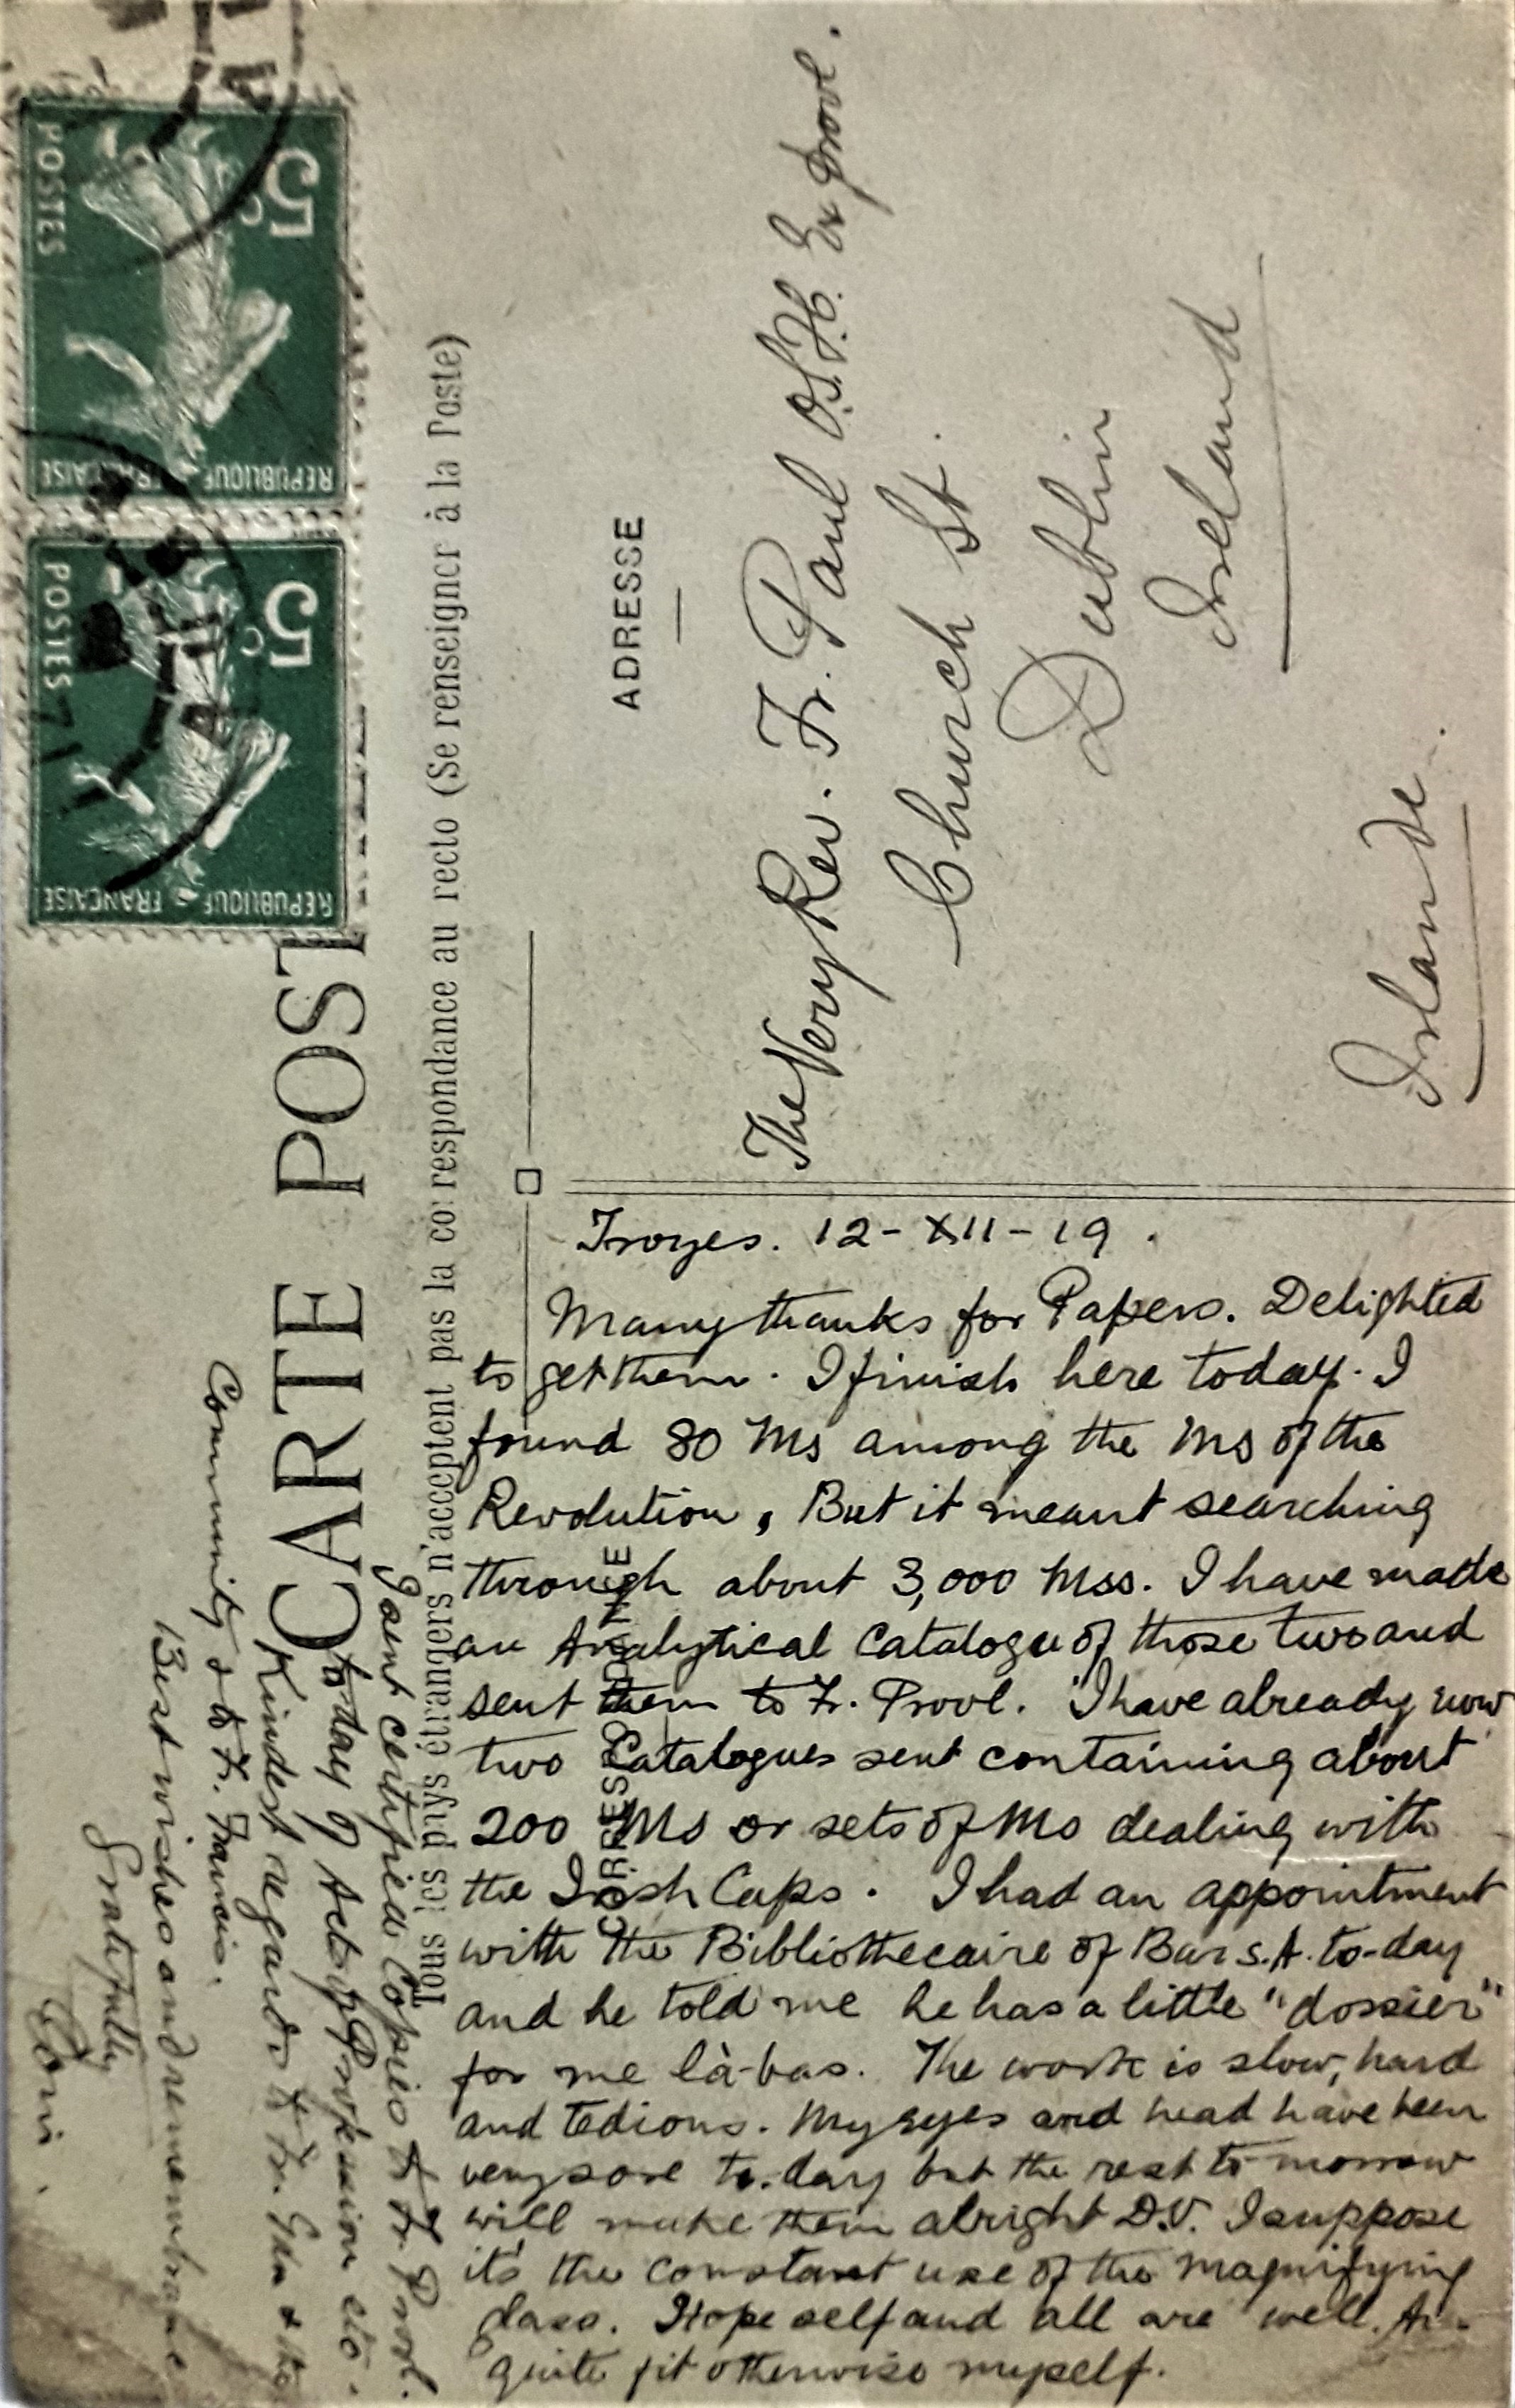 CARTE POST
Tous les pays étrangers n'acceptent pas la correspondance au recto (Se renseigner à la Poste)
CORRESPONDANCE
ADRESSE
5c
POSTES
REPUBLIQUE FRANÇAISE
5c
POSTES
REPUBLIQUE FRANÇAISE
The Very Rev. Fr. Paul O.S.F.C. Ex prov.
Church St.
Dublin
Ireland
Irlande.
Troyes. 12-XII-19.
Many thanks for Papers. Delighted
to get them. I finish here today. I
found 80 Ms among the Ms of the
Revolution, But it meant searching
through about 3,000 Mss. I have made
an Analytical Catalogue of those two and
sent them to Fr. Provl. I have already now
two Catalogues sent containing about
200 Ms or sets of Ms dealing with
the Irish Caps. I had an appointment
with the Bibliothecaire of Bar s.A. to-day
and he told me he has a little "dossier"
for me là-bas. The work is slow, hard
and tedious. My eyes and head have been
very sore to-day but the rest to morrow
will make them alright D.V. I suppose
it's the constant use of the magnifying
glass. Hope self and all are well. Am
quite fit otherwise myself.
certified Copies to Fr. Provl.
to day of Acts of Profession etc.
Kindest regards to Fr. Gdn & the
Community & to Fr. Francis.
Best wishes and remembrance
Gratefully